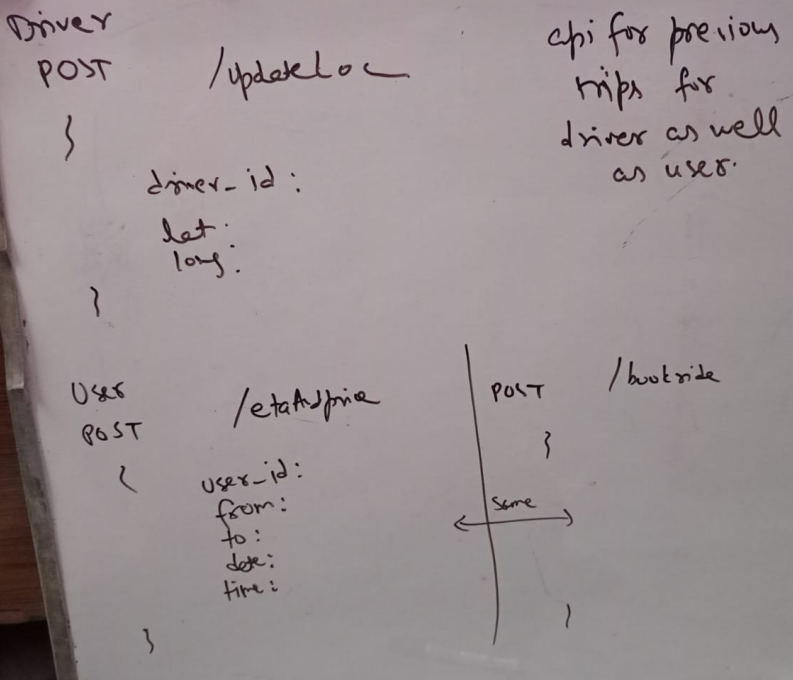 Driver
POST /updateLoc
}
driver_id:
lat:
long:
}
api for previous
trips for
driver as well
as user.
User
POST /etaAndprice
{
user_id:
from:
to:
date:
time:
}
POST /bookride
}
Same
}